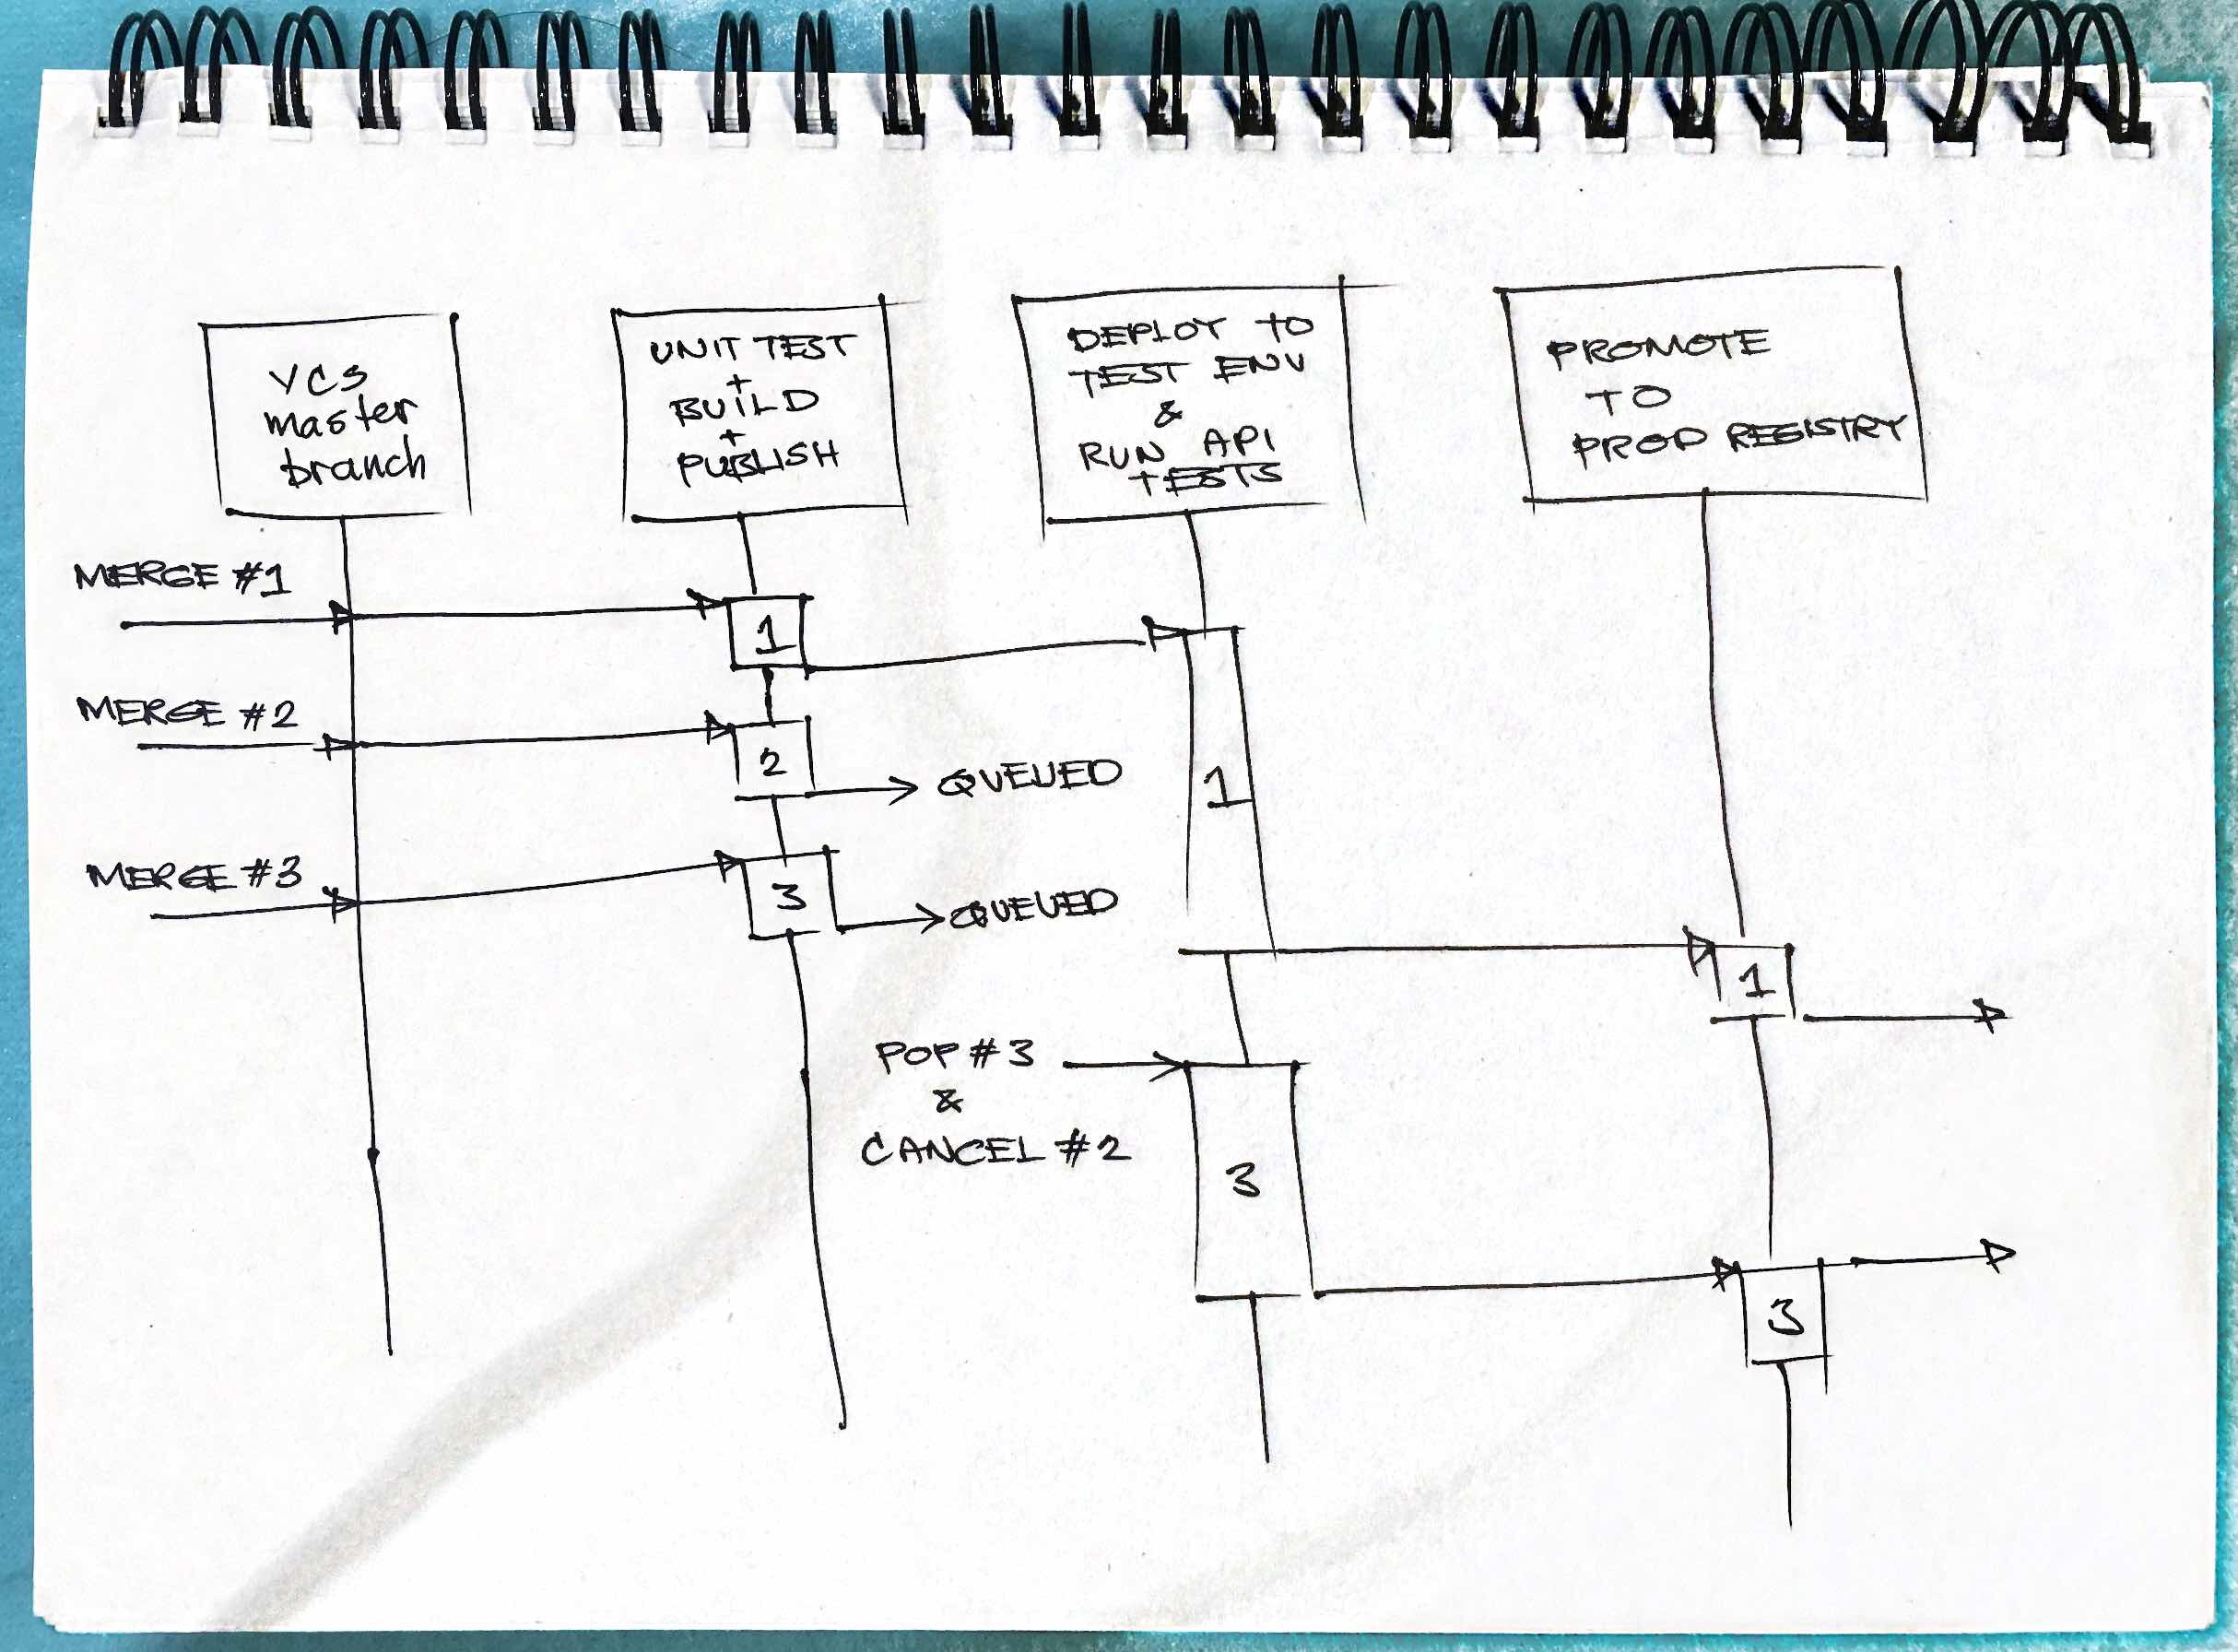 VCS
master
branch
UNIT TEST
+
BUILD
+
PUBLISH
DEPLOY TO
TEST ENV
&
RUN API
TESTS
PROMOTE
TO
PROD REGISTRY
MERGE #1
1
MERGE #2
2
QUEUED
1
MERGE #3
3
QUEUED
1
POP #3
&
CANCEL #2
3
3